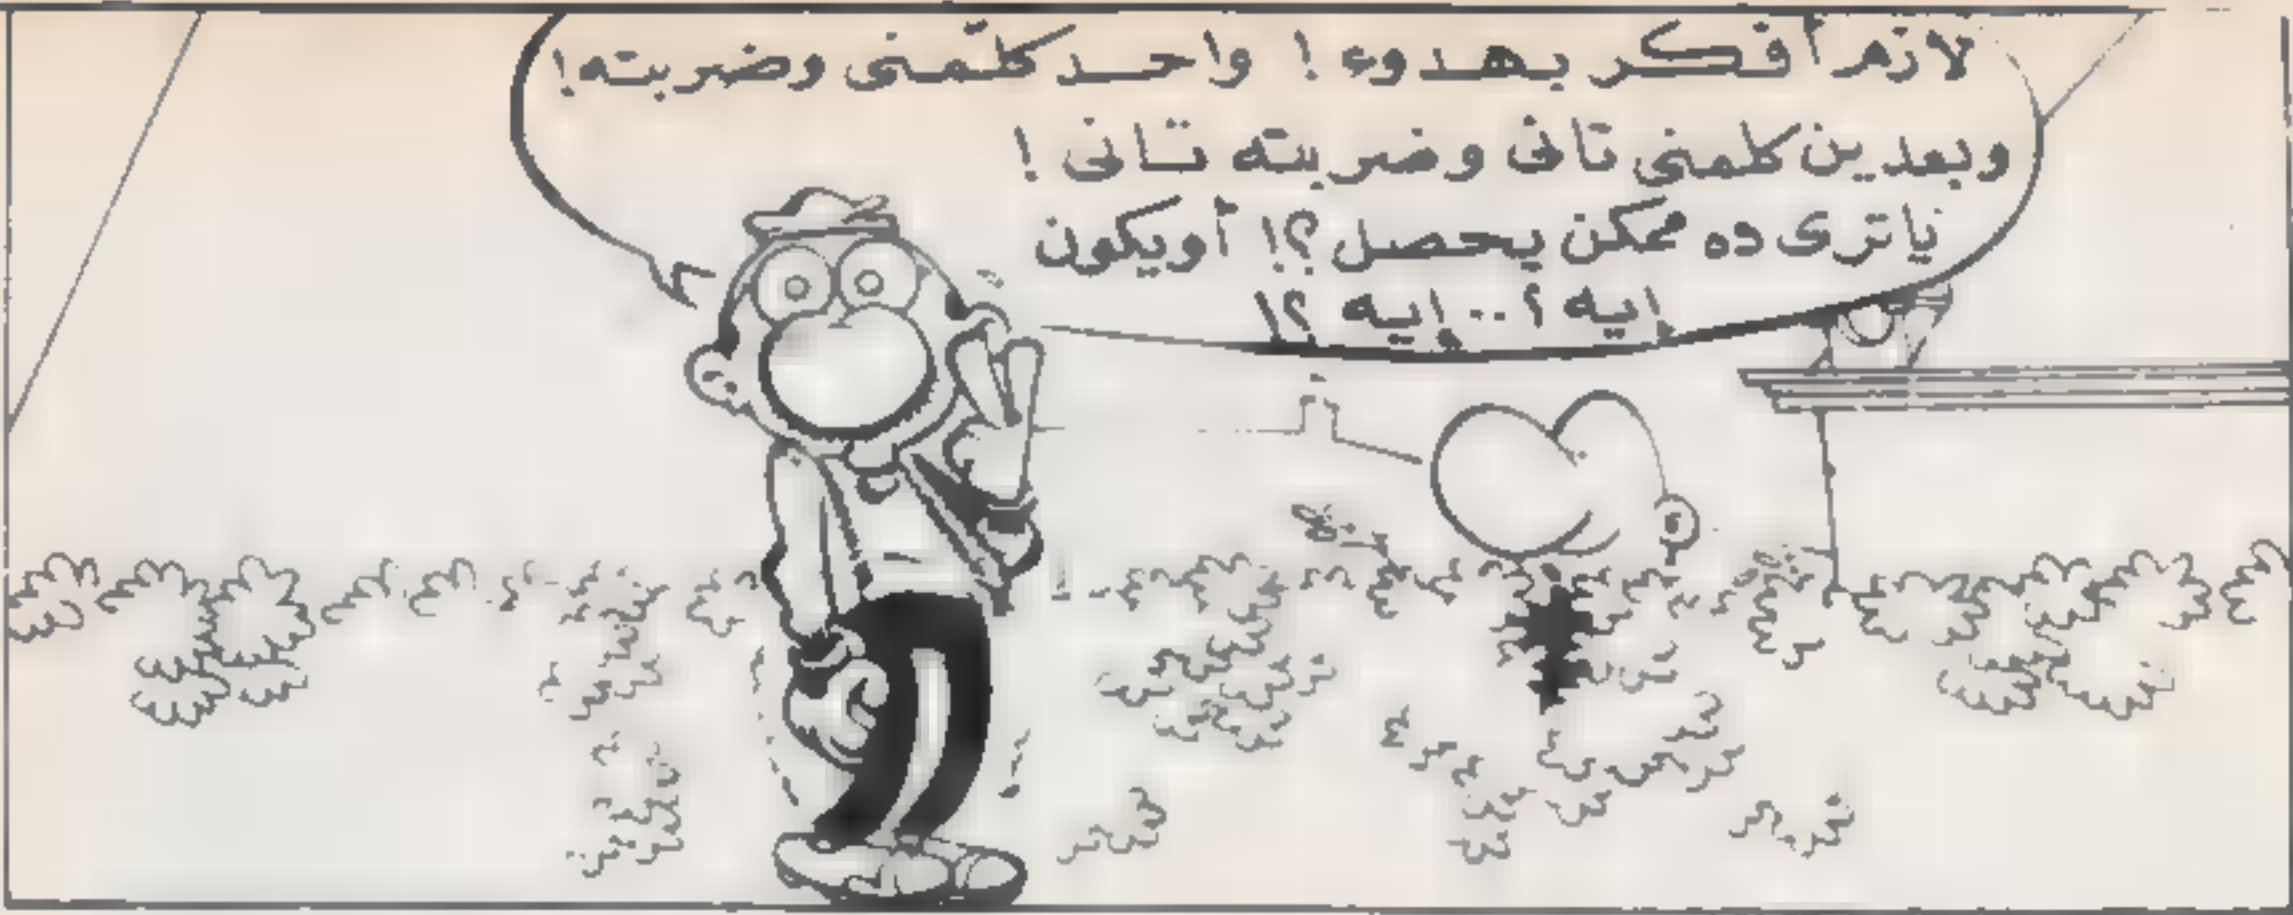 لازم أفكر بهدوء ! واحد كلّمنى وضربته !
وبعدين كلمنى تانى وضربته تانى !
ياترى ده ممكن يحصل ؟! أويكون
إيه ؟ .. إيه ؟!